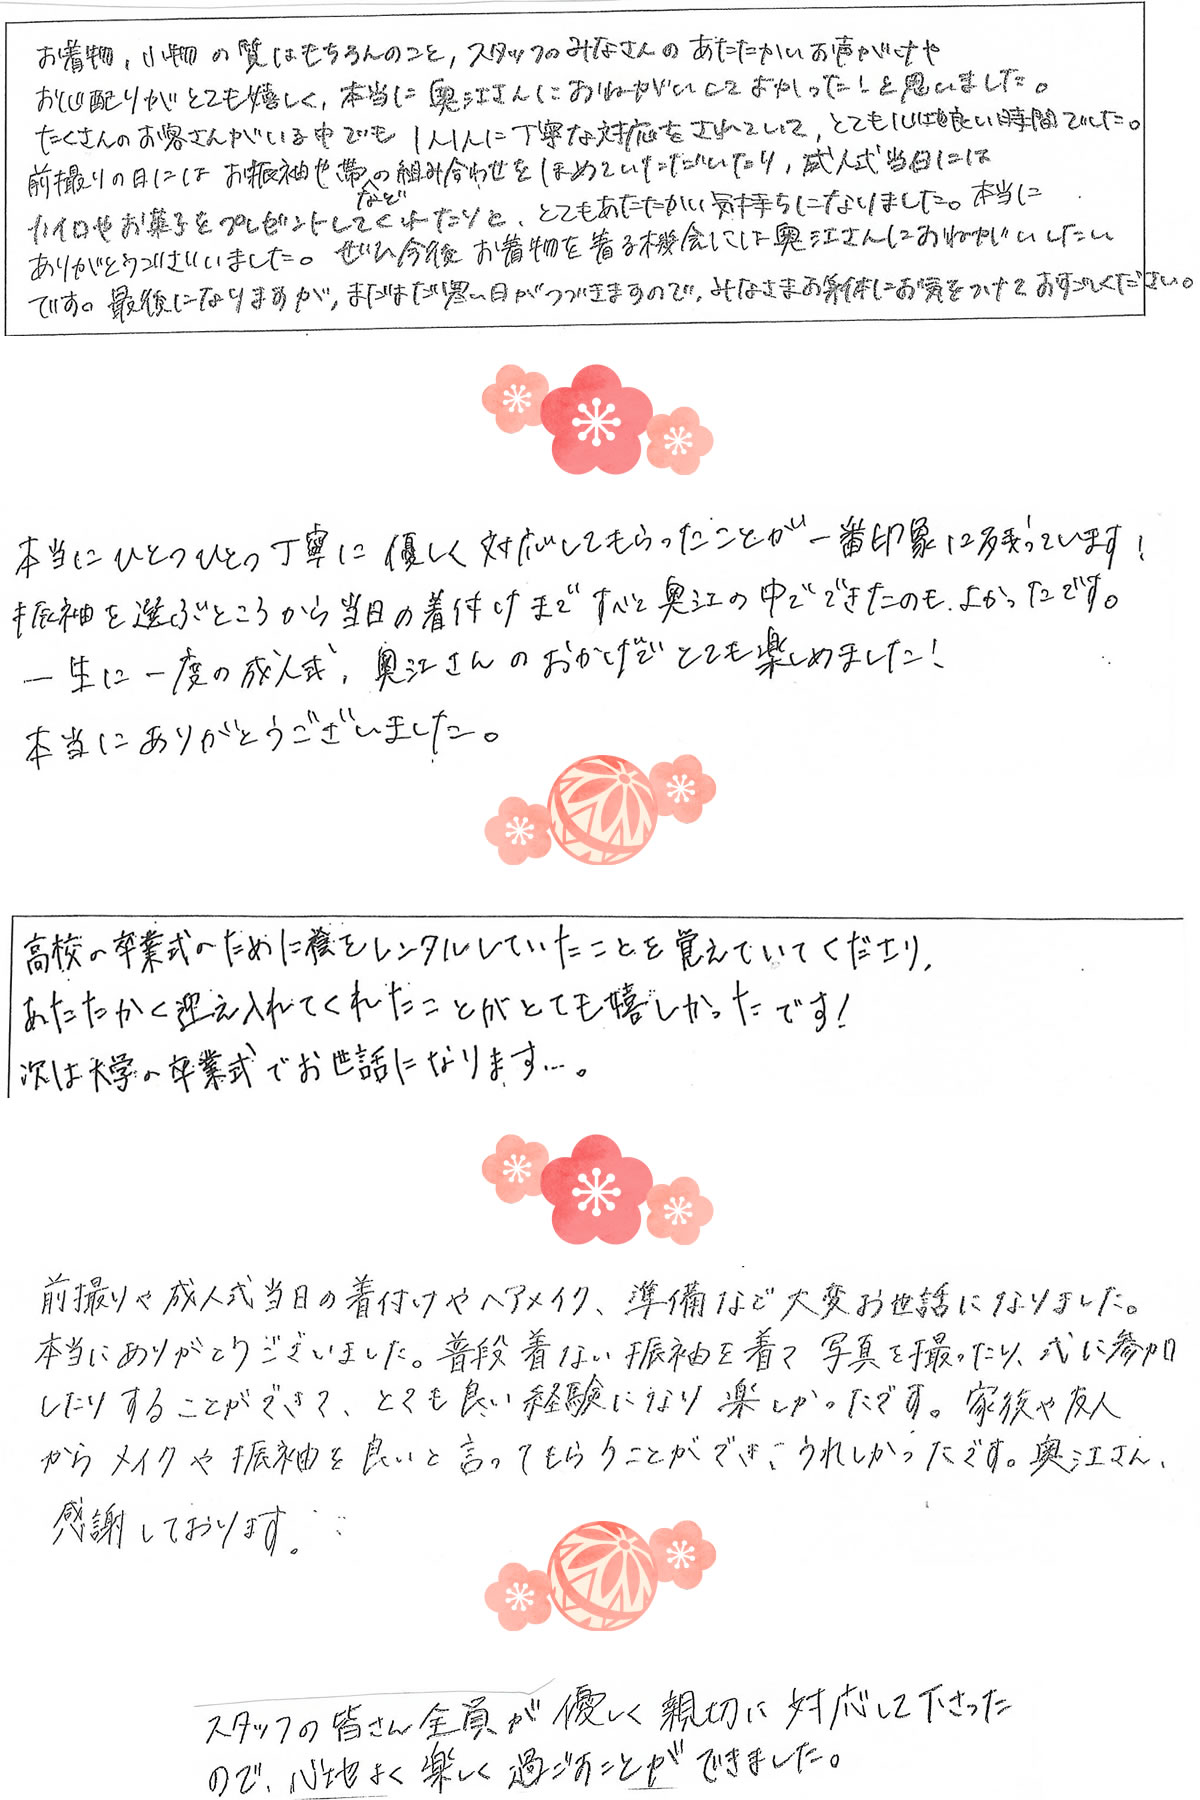 お着物、小物の質はもちろんのこと、スタッフのみなさんのあたたかいお声がけや
お心配りがとても嬉しく、本当に奥江さんにおねがいしてよかった！と思いました。
たくさんのお客さんがいる中でも1人1人に丁寧な対応をされていて、とても心地良い時間でした。
前撮りの日にはお振袖や帯などの組み合わせをほめていただいたり、成人式当日には
カイロやお菓子をプレゼントしてくれたりと、とてもあたたかい気持ちになりました。本当に
ありがとうございました。ぜひ今後お着物を着る機会には奥江さんにおねがいしたい
です。最後になりますが、まだまだ寒い日がつづきますので、みなさまお身体にお気をつけておすごしください。
本当にひとつひとつ丁寧に優しく対応してもらったことが一番印象に残っています！
振袖を選ぶところから当日の着付けまですべて奥江の中でできたのも、よかったです。
一生に一度の成人式、奥江さんのおかげでとても楽しめました！
本当にありがとうございました。
高校の卒業式のために袴をレンタルしていたことを覚えていてくださり、
あたたかく迎え入れてくれたことがとても嬉しかったです！
次は大学の卒業式でお世話になります…。
前撮りや成人式当日の着付けやヘアメイク、準備など大変お世話になりました。
本当にありがとうございました。普段着ない振袖を着て写真を撮ったり、式に参加
したりすることができて、とても良い経験になり楽しかったです。家族や友人
からメイクや振袖を良いと言ってもらうことができ、うれしかったです。奥江さん、
感謝しております。
スタッフの皆さん全員が優しく親切に対応して下さった
ので、心地よく楽しく過ごすことができました。